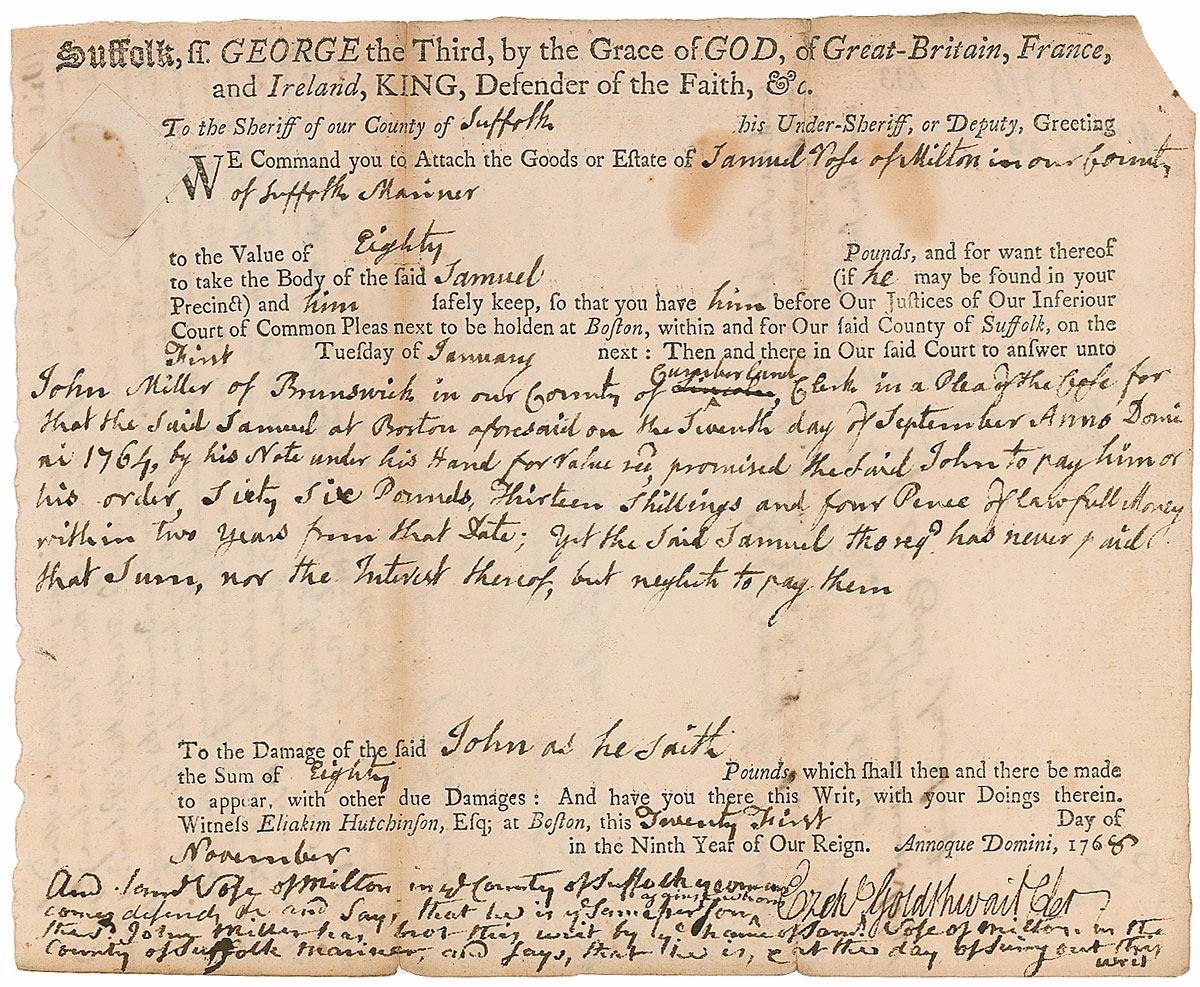 Suffolk, ſſ. GEORGE the Third, by the Grace of GOD, of Great-Britain, France,
and Ireland, KING, Defender of the Faith, &c.
To the Sheriff of our County of Suffolk his Under-Sheriff, or Deputy, Greeting
WE Command you to Attach the Goods or Eſtate of Samuel Vose of Milton in our County
of Suffolk Mariner
to the Value of Eighty Pounds, and for want thereof
to take the Body of the ſaid Samuel (if he may be found in your
Precinct) and him ſafely keep, ſo that you have him before Our Juſtices of Our Inferiour
Court of Common Pleas next to be holden at Boſton, within and for Our ſaid County of Suffolk, on the
First Tueſday of January next : Then and there in Our ſaid Court to anſwer unto
Cumberland
John Miller of Brunswick in our County of Lincoln, Clerk in a Plea of the Case for
that the said Samuel at Boston aforesaid on the Seventh day of September Anno Domi
ni 1764, by his Note under his Hand for Value recd, promised the said John to pay him or
his order, Sixty Six Pounds, Thirteen Shillings and four Pence of lawfull Money
within two years from that Date; Yet the said Samuel tho reqd. has never paid
that Sum, nor the Interest thereof, but neglects to pay them
To the Damage of the ſaid John as he saith
the Sum of Eighty Pounds, which ſhall then and there be made
to appear, with other due Damages : And have you there this Writ, with your Doings therein.
Witneſs Eliakim Hutchinſon, Eſq; at Boſton, this Twenty First Day of
November in the Ninth Year of Our Reign. Annoque Domini, 1768
And Saml Vose of Milton in ye County of Suffolk yeoman
against whom
Ezekl. Goldthwait Cler
comes defends &c and says, that he is ye same person
the sd. John Miller has bro't this writ by ye name of Saml. Vose of Milton in the
County of Suffolk mariner, and says, that he is, & at the day of suing out this
writ